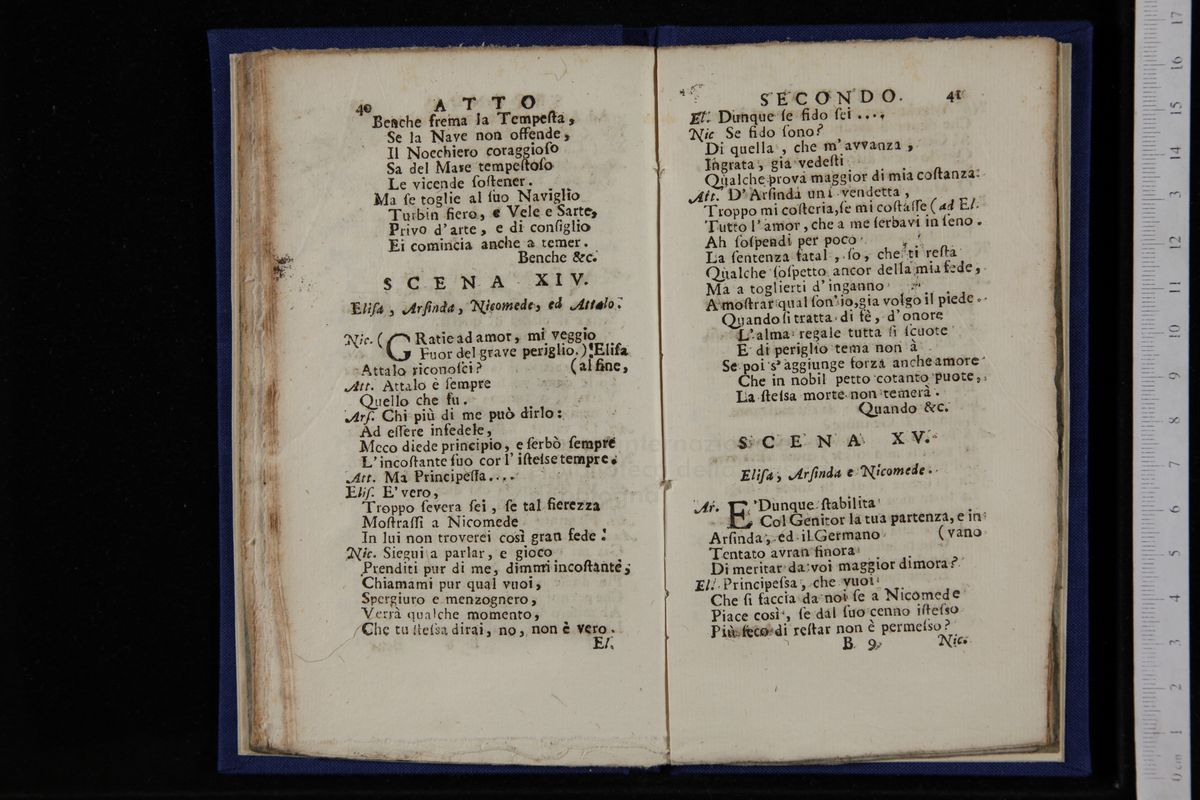 40 ATTO
Benche frema la Tempeſta,
Se la Nave non offende,
Il Nocchiero coraggioſo
Sa del Mare tempeſtoſo
Le vicende ſoſtener.
Ma ſe toglie al ſuo Naviglio
Turbin fiero, e Vele e Sarte,
Privo d'arte, e di conſiglio
Ei comincia anche a temer.
Benche &c.
SCENA XIV.
Eliſa, Arſinda, Nicomede, ed Attalo.
Nic. (GRatie ad amor, mi veggio
Fuor del grave periglio.) Eliſa
Attalo riconoſci? (al fine,
Att. Attalo è ſempre
Quello che fu.
Arſ. Chi più di me può dirlo:
Ad eſſere infedele,
Meco diede principio, e ſerbò ſempre
L'incoſtante ſuo cor l' iſteſse tempre.
Att. Ma Principeſſa....
Eliſ. E' vero,
Troppo ſevera ſei, ſe tal fierezza
Moſtraſſi a Nicomede
In lui non troverei così gran fede.
Nic. Siegui a parlar, e gioco
Prenditi pur di me, dimmi incoſtante,
Chiamami pur qual vuoi,
Spergiuro e menzognero,
Verrà qualche momento,
Che tu ſteſsa dirai, no, non è vero.
El.
SECONDO. 41
El. Dunque ſe fido ſei....
Nic Se fido ſono?
Di quella, che m'avvanza,
Ingrata, gia vedeſti
Qualche prova maggior di mia coſtanza.
Att. D'Arſinda uni vendetta,
Troppo mi coſteria, ſe mi coſtaſſe (ad El.
Tutto l'amor, che a me ſerbavi in ſeno.
Ah ſoſpendi per poco
La ſentenza fatal, ſo, che ti reſta
Qualche ſoſpetto ancor della mia fede,
Ma a toglierti d'inganno
A moſtrar qual ſon' io, gia volgo il piede.
Quando ſi tratta di fè, d'onore
L'alma regale tutta ſi ſcuote
E di periglio tema non à
Se poi s'aggiunge forza anche amore
Che in nobil petto cotanto puote,
La ſteſsa morte non temerà.
Quando &c.
SCENA XV.
Eliſa, Arſinda e Nicomede.
Ar. E'Dunque ſtabilita
Col Genitor la tua partenza, e in
Arſinda, ed il Germano (vano
Tentato avran finora
Di meritar da voi maggior dimora?
El. Principeſsa, che vuoi
Che ſi faccia da noi ſe a Nicomede
Piace così, ſe dal ſuo cenno iſteſso
Più ſeco di reſtar non è permeſso?
B 9 Nic.